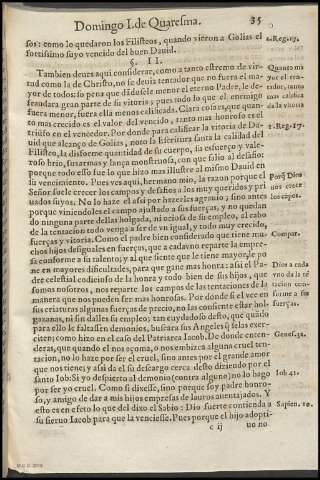 Domingo I. de Quaresma. 35
sos: como lo quedaron los Filisteos, quando vieron a Golias el
fortissimo suyo vencido del buen Dauid.
1. Reg. 17.
§. II.
Tambien deueys aqui considerar, como a tanto estremo de vir-
tud como la de Christo, no se deuia tentador que no fuera el ma-
yor de todos: so pena que
grandara gran parte de su vitoria; pues todo lo que el enemigo
fuera menor, fuera ella menos calificada. Claro cosa es, que quan-
to mas crecido es el valor del vencido, tanto mas honroso es el
triufo en el vencedor. Por donde para calificar la vitoria de Da-
uid que alcançò de Golias, noto la Escritura santa la calidad del
Filisteo, la disforme quantidad de su cuerpo, su esfuerço y vale-
roso brio, sus armas y lança monstruosa, con que salio al desafio:
porque todo esso fue lo que hizo mas illustre al mismo Dauid en
su vencimiento. Pues ves aqui, hermano mio, la razon porque el
Señor suele crecer los campos y desafios a los muy queridos y pri
uados suyos. No lo haze el assi por hazerles agrauio; sino antes
porque viniendoles el campo ajustado a sus fuerças, y no quedan
do ninguna parte dellas holgada, ni ociosa de su empleo, al cabo
de la tentacion todo venga a ser de vn igual, y todo muy crecido,
fuerças y vitoria. Como el padre bien considerado que tiene mu-
chos hijos desiguales en fuerças, que a cada vno reparte la empre-
sa conforme a su talento; y al que siente que le tiene mayor, le po
ne en mayores dificultades, para que gane mas honra: assi el Pa-
dre celestial codicioso de la honra y todo bien de sus hijos, que
somos nosotros, nos reparte los campos de las tentaciones de la
manera que nos pueden ser mas honrosas. Por donde si el vee en
sus criaturas algunas fuerças de precio, no las consiente estar hol-
gazanas, ni sin dalles su empleo; tan cuydadoso desto, que quãdo
para ello le faltassen demonios, buscara sus Angeles que las exer-
citen; como hizo en el caso del Patriarca Iacob. De donde enten-
deras, que quando el nos acoma, o nos embia a alguna cruel ten-
tacion, no lo haze por ser el cruel, sino antes por el grande amor
que nos tiene; y assi da el su descargo cerca desto diziendo por el
santo Iob: Si yo despierto al demonio (contra alguno) no lo hago
por ser yo cruel. Como si dixesse, sino porque soy padre honro-
so, y amigo de dar a mis hijos empresas de lauros auentajados. Y
esto es en efeto lo que del dixo el Sabio: Dio fuerte contienda a
su sieruo Iacob para que la venciesse. Pues porque el hijo adopti-
c ij
uo no
Quanto ma
yor el ten-
tador, tanto
mas calificò
de la vitoria
1. Reg. 17.
Porq̃ Dios
nos crece
los cãpos.
Compar.
Dios a cada
vno da la tẽ
tacion con-
forme a sus
fuerças.
Genes. 32.
Iob 41.
Sapien. 10.